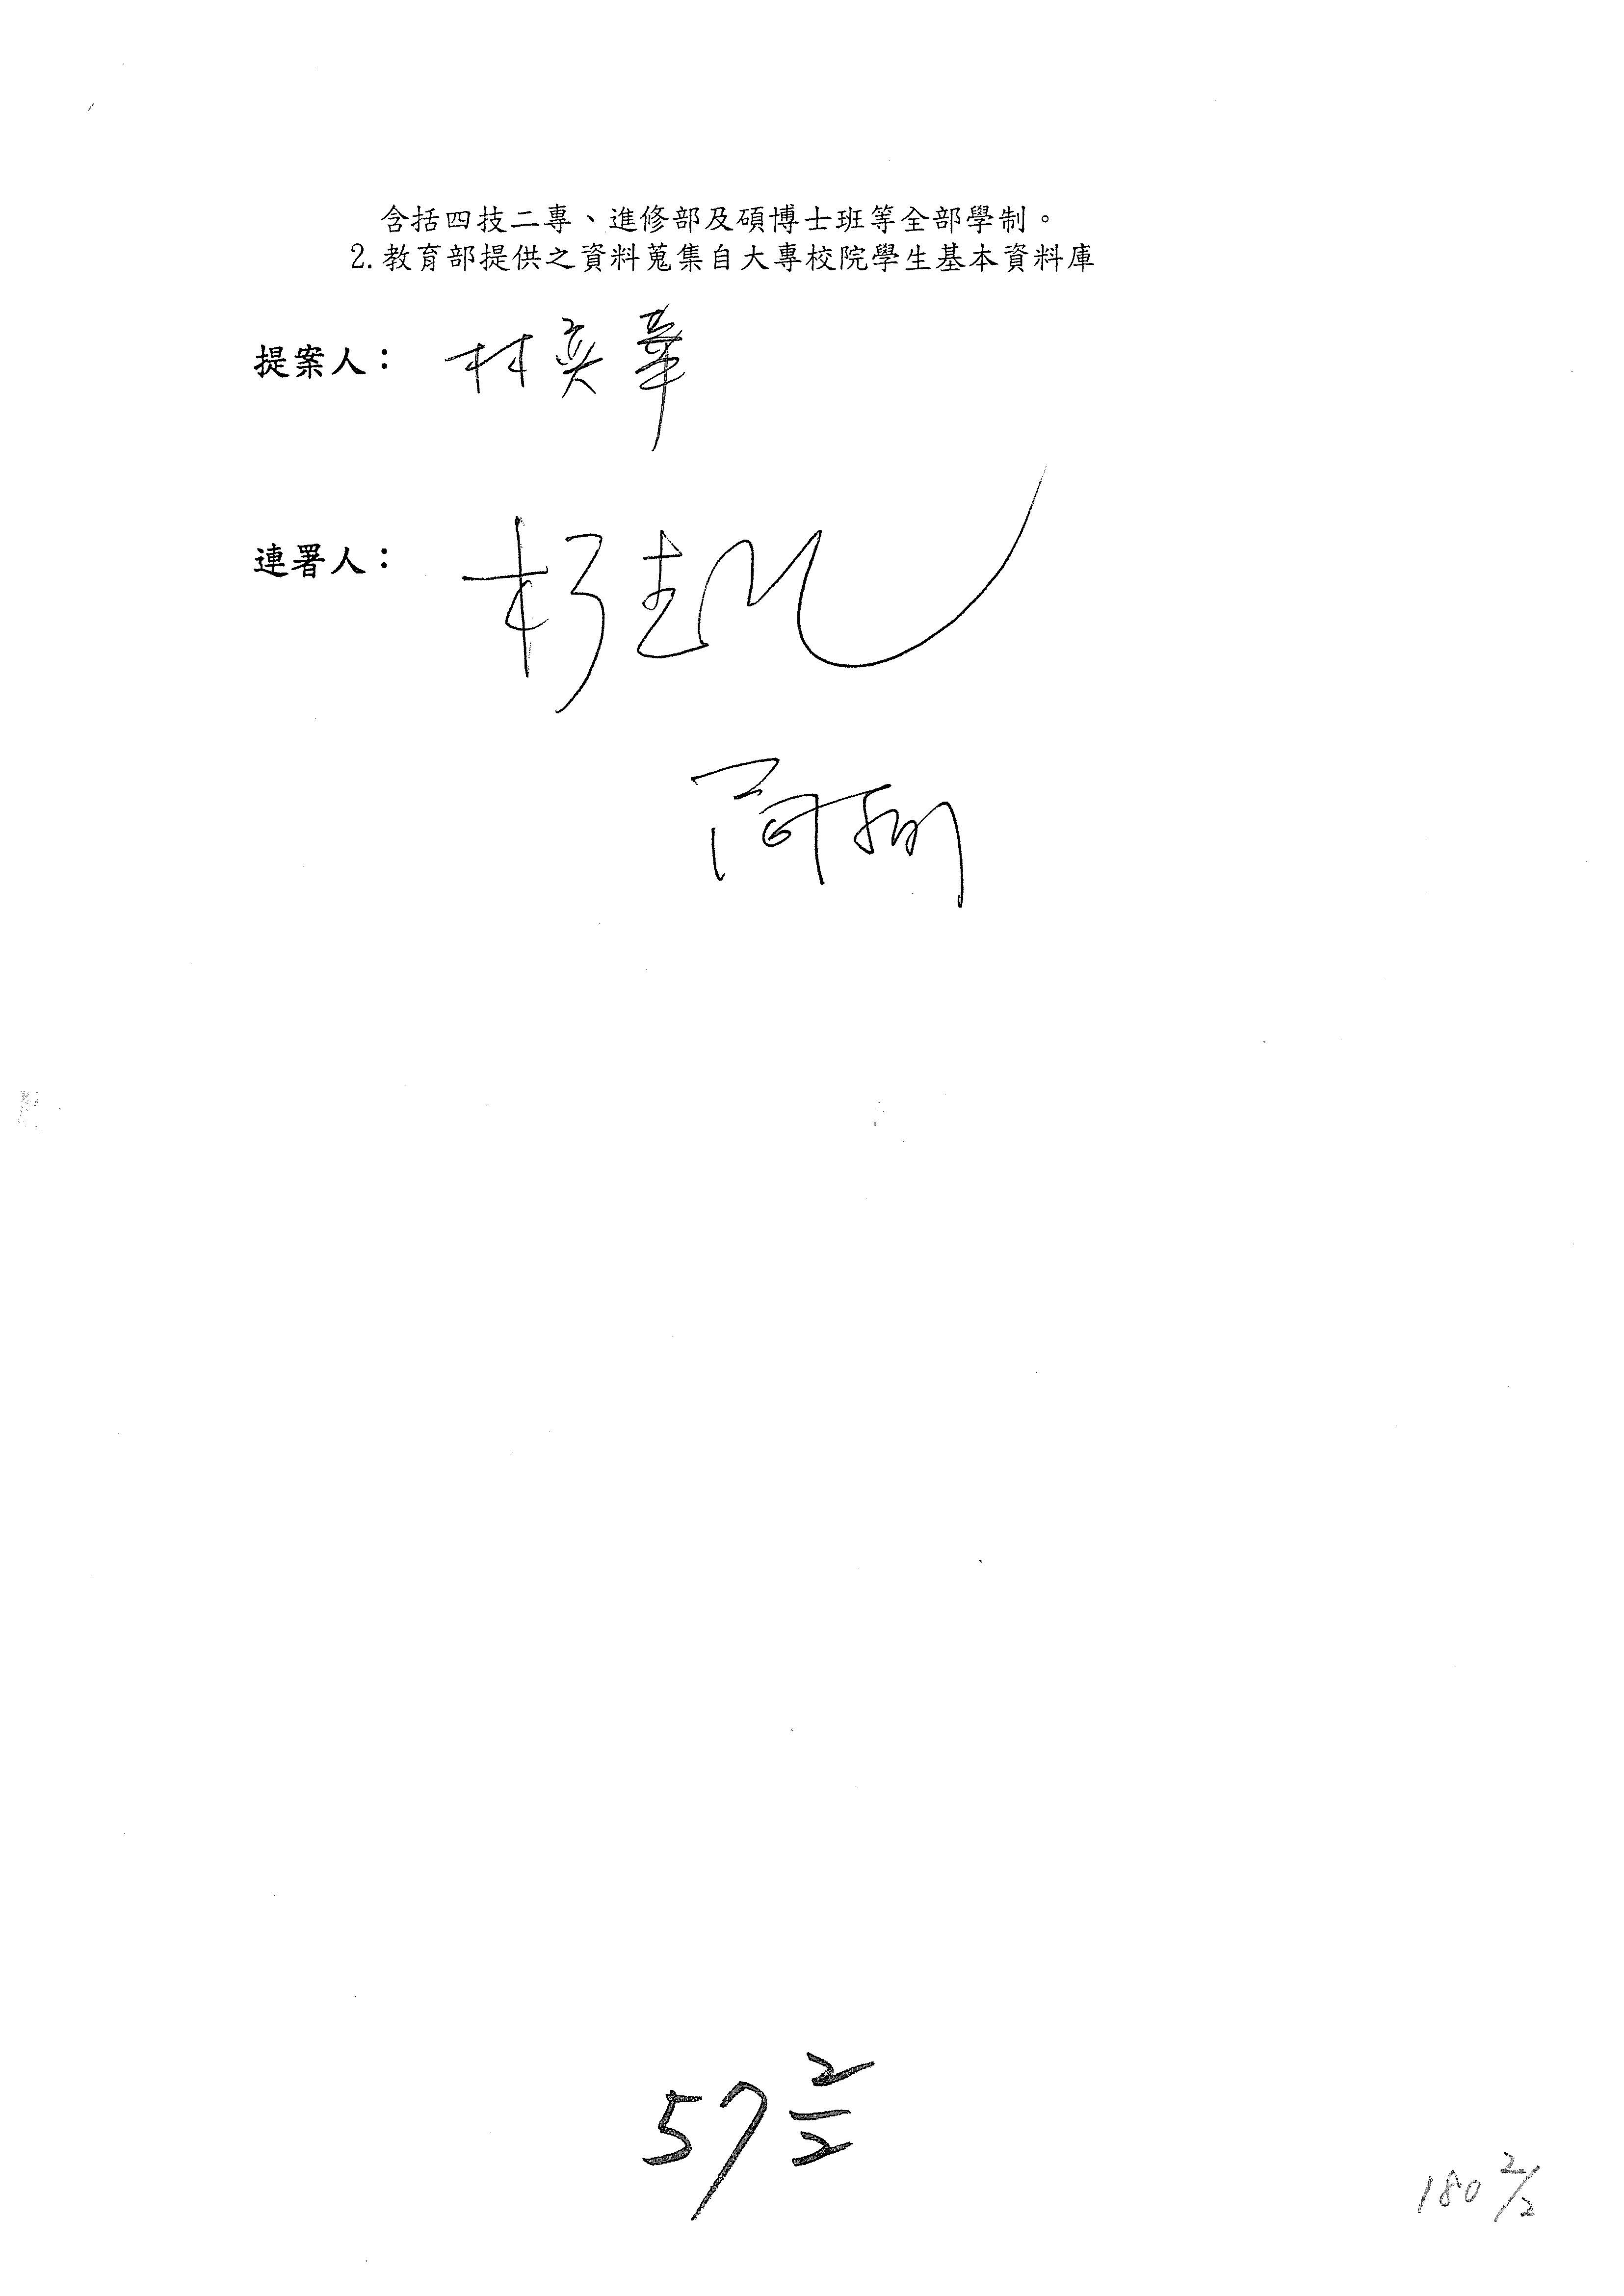 含括四技二專、進修部及碩博士班等全部學制。
2.教育部提供之資料蒐集自大專校院學生基本資料庫
提案人：林奕華
連署人：
57 2/2
180 2/2